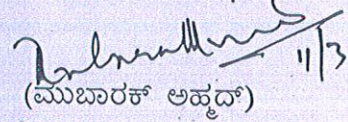 11/3
(ಮುಬಾರಕ್ ಅಹ್ಮದ್)